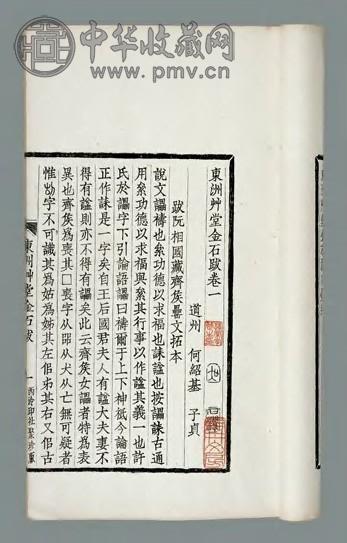 中华收藏网
www.pmv.cn
東洲艸堂金石跋卷一
道州 何紹基 子貞
跋阮相國藏齊矦罍文拓本
說文讄禱也纍功德以求福也誄諡也按讄誄古通
用纍功德以求福與纍其行事以作諡其義一也許
氏於讄字下引論語讄曰禱爾于上下神祇今論語
正作誄是一字矣自王后國君夫人有諡大夫妻不
得有諡則亦不得有讄矣此云齊矦女讄者特爲表
異也齊矦爲喪其□喪字从噐从犬从亡無可疑者
惟字不可識其爲姑爲姊其左佀弟其右又佀古
東洲艸堂金石跋
一
西泠印社聚珍版